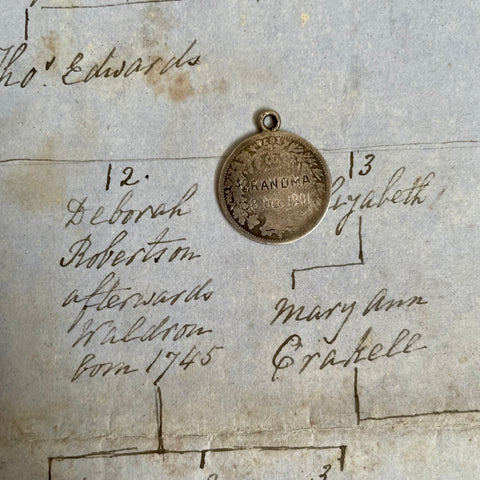 Tho.s Edwards
12.
Deborah
Robertson
afterwards
Waldron
born 1745
GRANDMA
DEC. 1901
13
Elizabeth
Mary Ann
Crakell
3